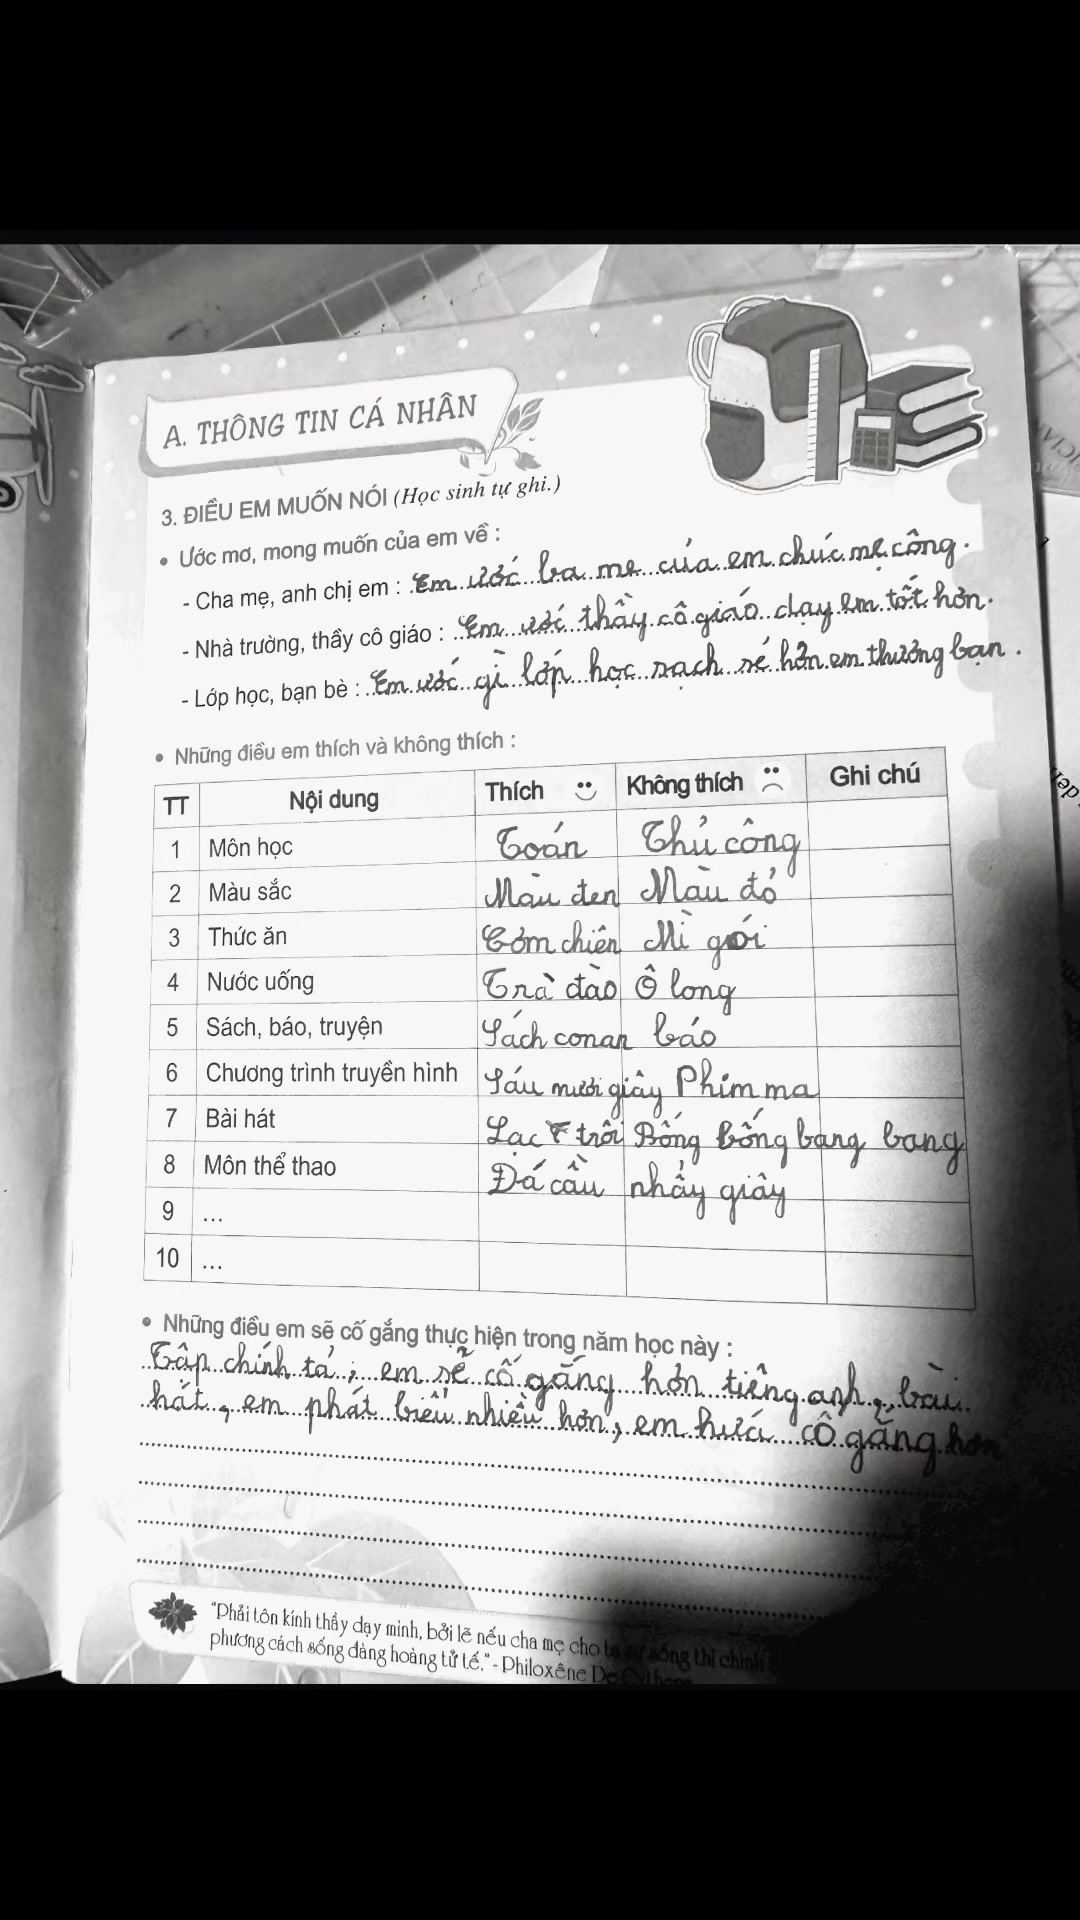 A. THÔNG TIN CÁ NHÂN
3. ĐIỀU EM MUỐN NÓI (Học sinh tự ghi.)
• Ước mơ, mong muốn của em về :
- Cha mẹ, anh chị em : Em ước ba mẹ của em chúc mẹ công.
- Nhà trường, thầy cô giáo : Em ước thầy cô giáo dạy em tốt hơn.
- Lớp học, bạn bè : Em ước gì lớp học sạch sẽ hơn em thưởng bạn.
• Những điều em thích và không thích :
TT Nội dung Thích Không thích Ghi chú
1 Môn học Toán Thủ công
2 Màu sắc Màu đen Màu đỏ
3 Thức ăn Cơm chiên Mì gói
4 Nước uống Trà đào Ô long
5 Sách, báo, truyện Sách conan báo
6 Chương trình truyền hình Sáu mươi giây Phim ma
7 Bài hát Lạc trôi Bống bống bang bang
8 Môn thể thao Đá cầu nhảy giây
9 ...
10 ...
• Những điều em sẽ cố gắng thực hiện trong năm học này :
Tập chính tả, em sẽ cố gắng hơn tiếng anh, bài
hát, em phát biểu nhiều hơn, em hứa cố gắng hơn
"Phải tôn kính thầy dạy mình, bởi lẽ nếu cha mẹ cho ta sự sống thì chính
phương cách sống đàng hoàng tử tế." - Philoxêne De